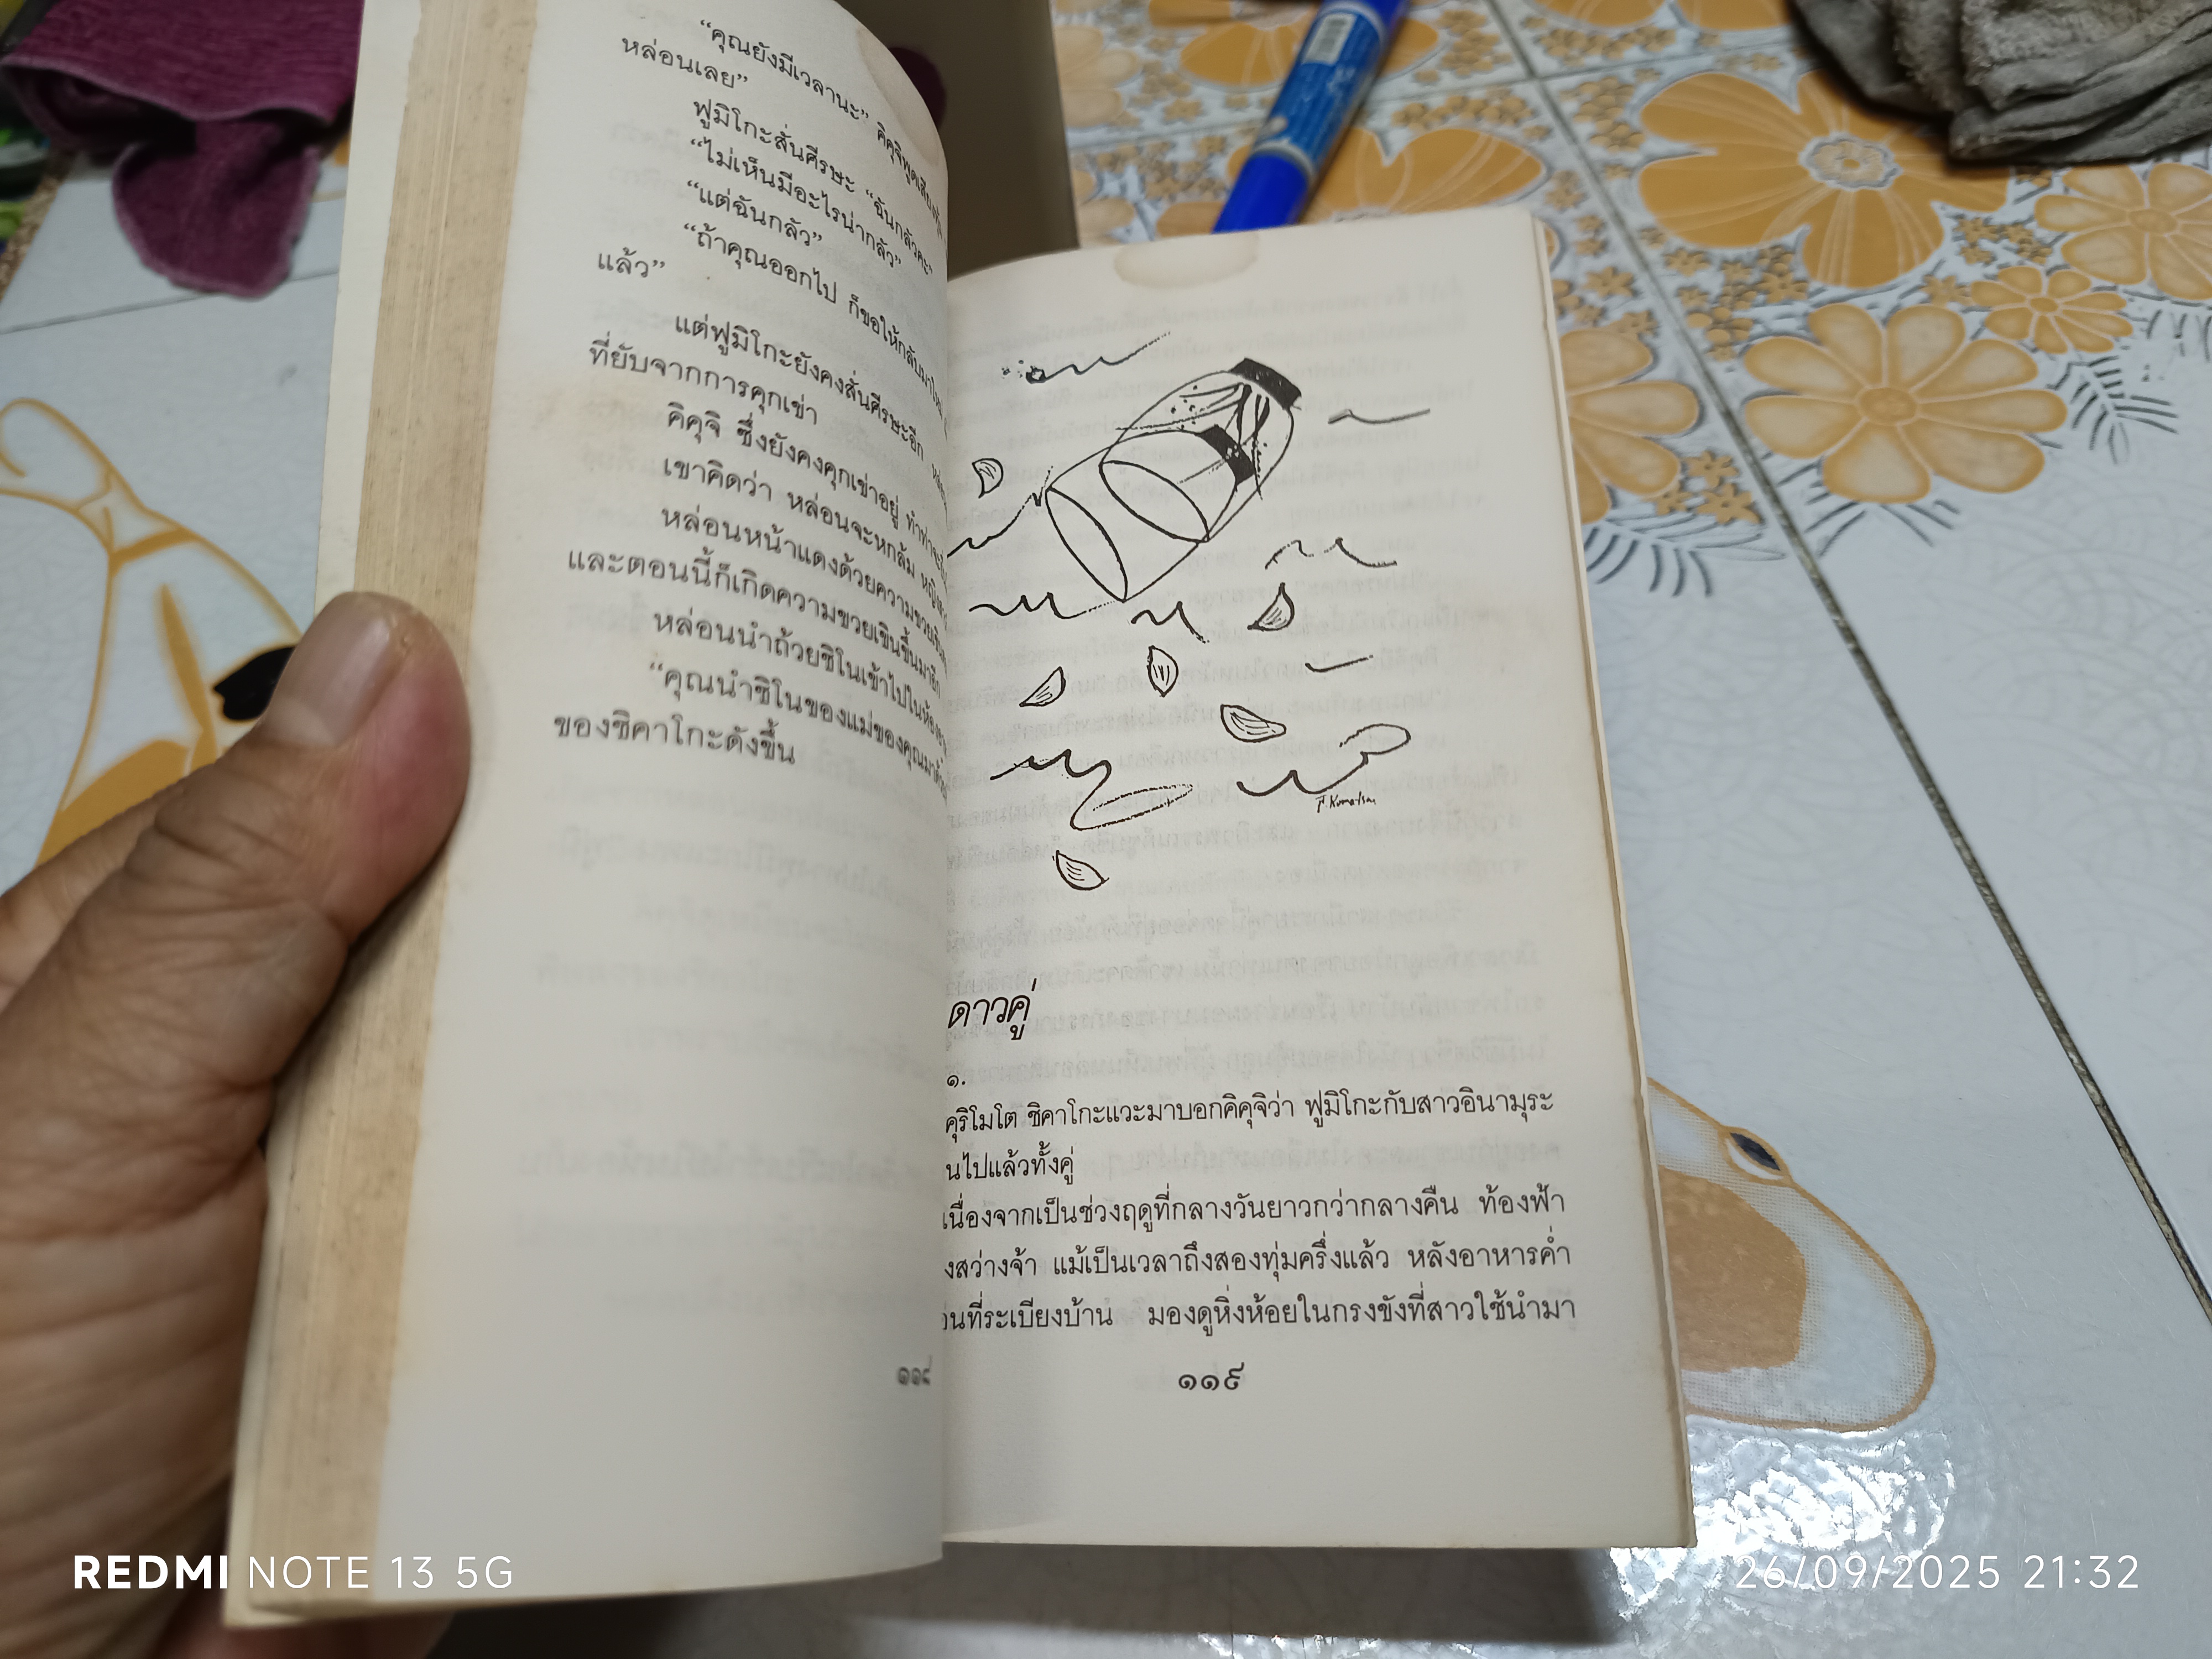 “คุณยังมีเวลานะ” คิคุจิพูดเสียง
หล่อนเลย”
ฟูมิโกะสั่นศีรษะ “ฉันกลัวคะ”
“ไม่เห็นมีอะไรน่ากลัว”
“แต่ฉันกลัว”
“ถ้าคุณออกไป ก็ขอให้กลับมาใหม่
แล้ว”
แต่ฟูมิโกะยังคงสั่นศีรษะอีก
ที่ยับจากการคุกเข่า
คิคุจิ ซึ่งยังคงคุกเข่าอยู่ ทำท่าจะ
เขาคิดว่า หล่อนจะหกล้ม
หล่อนหน้าแดงด้วยความขวยเขิน
และตอนนี้ก็เกิดความขวยเขินขึ้นมาอีก
หล่อนนำถ้วยชิโนเข้าไปในห้อง
“คุณนำชิโนของแม่ของคุณมา
ของชิคาโกะดังขึ้น
๑๑๘
T. Komatsu
ดาวคู่
๑.
คุริโมโต ชิคาโกะแวะมาบอกคิคุจิว่า ฟูมิโกะกับสาวอินามุระ
นไปแล้วทั้งคู่
เนื่องจากเป็นช่วงฤดูที่กลางวันยาวกว่ากลางคืน ท้องฟ้า
งสว่างจ้า แม้เป็นเวลาถึงสองทุ่มครึ่งแล้ว หลังอาหารค่ำ
นที่ระเบียงบ้าน มองดูหิ่งห้อยในกรงขังที่สาวใช้นำมา
๑๑๙
REDMI NOTE 13 5G
26/09/2025 21:32